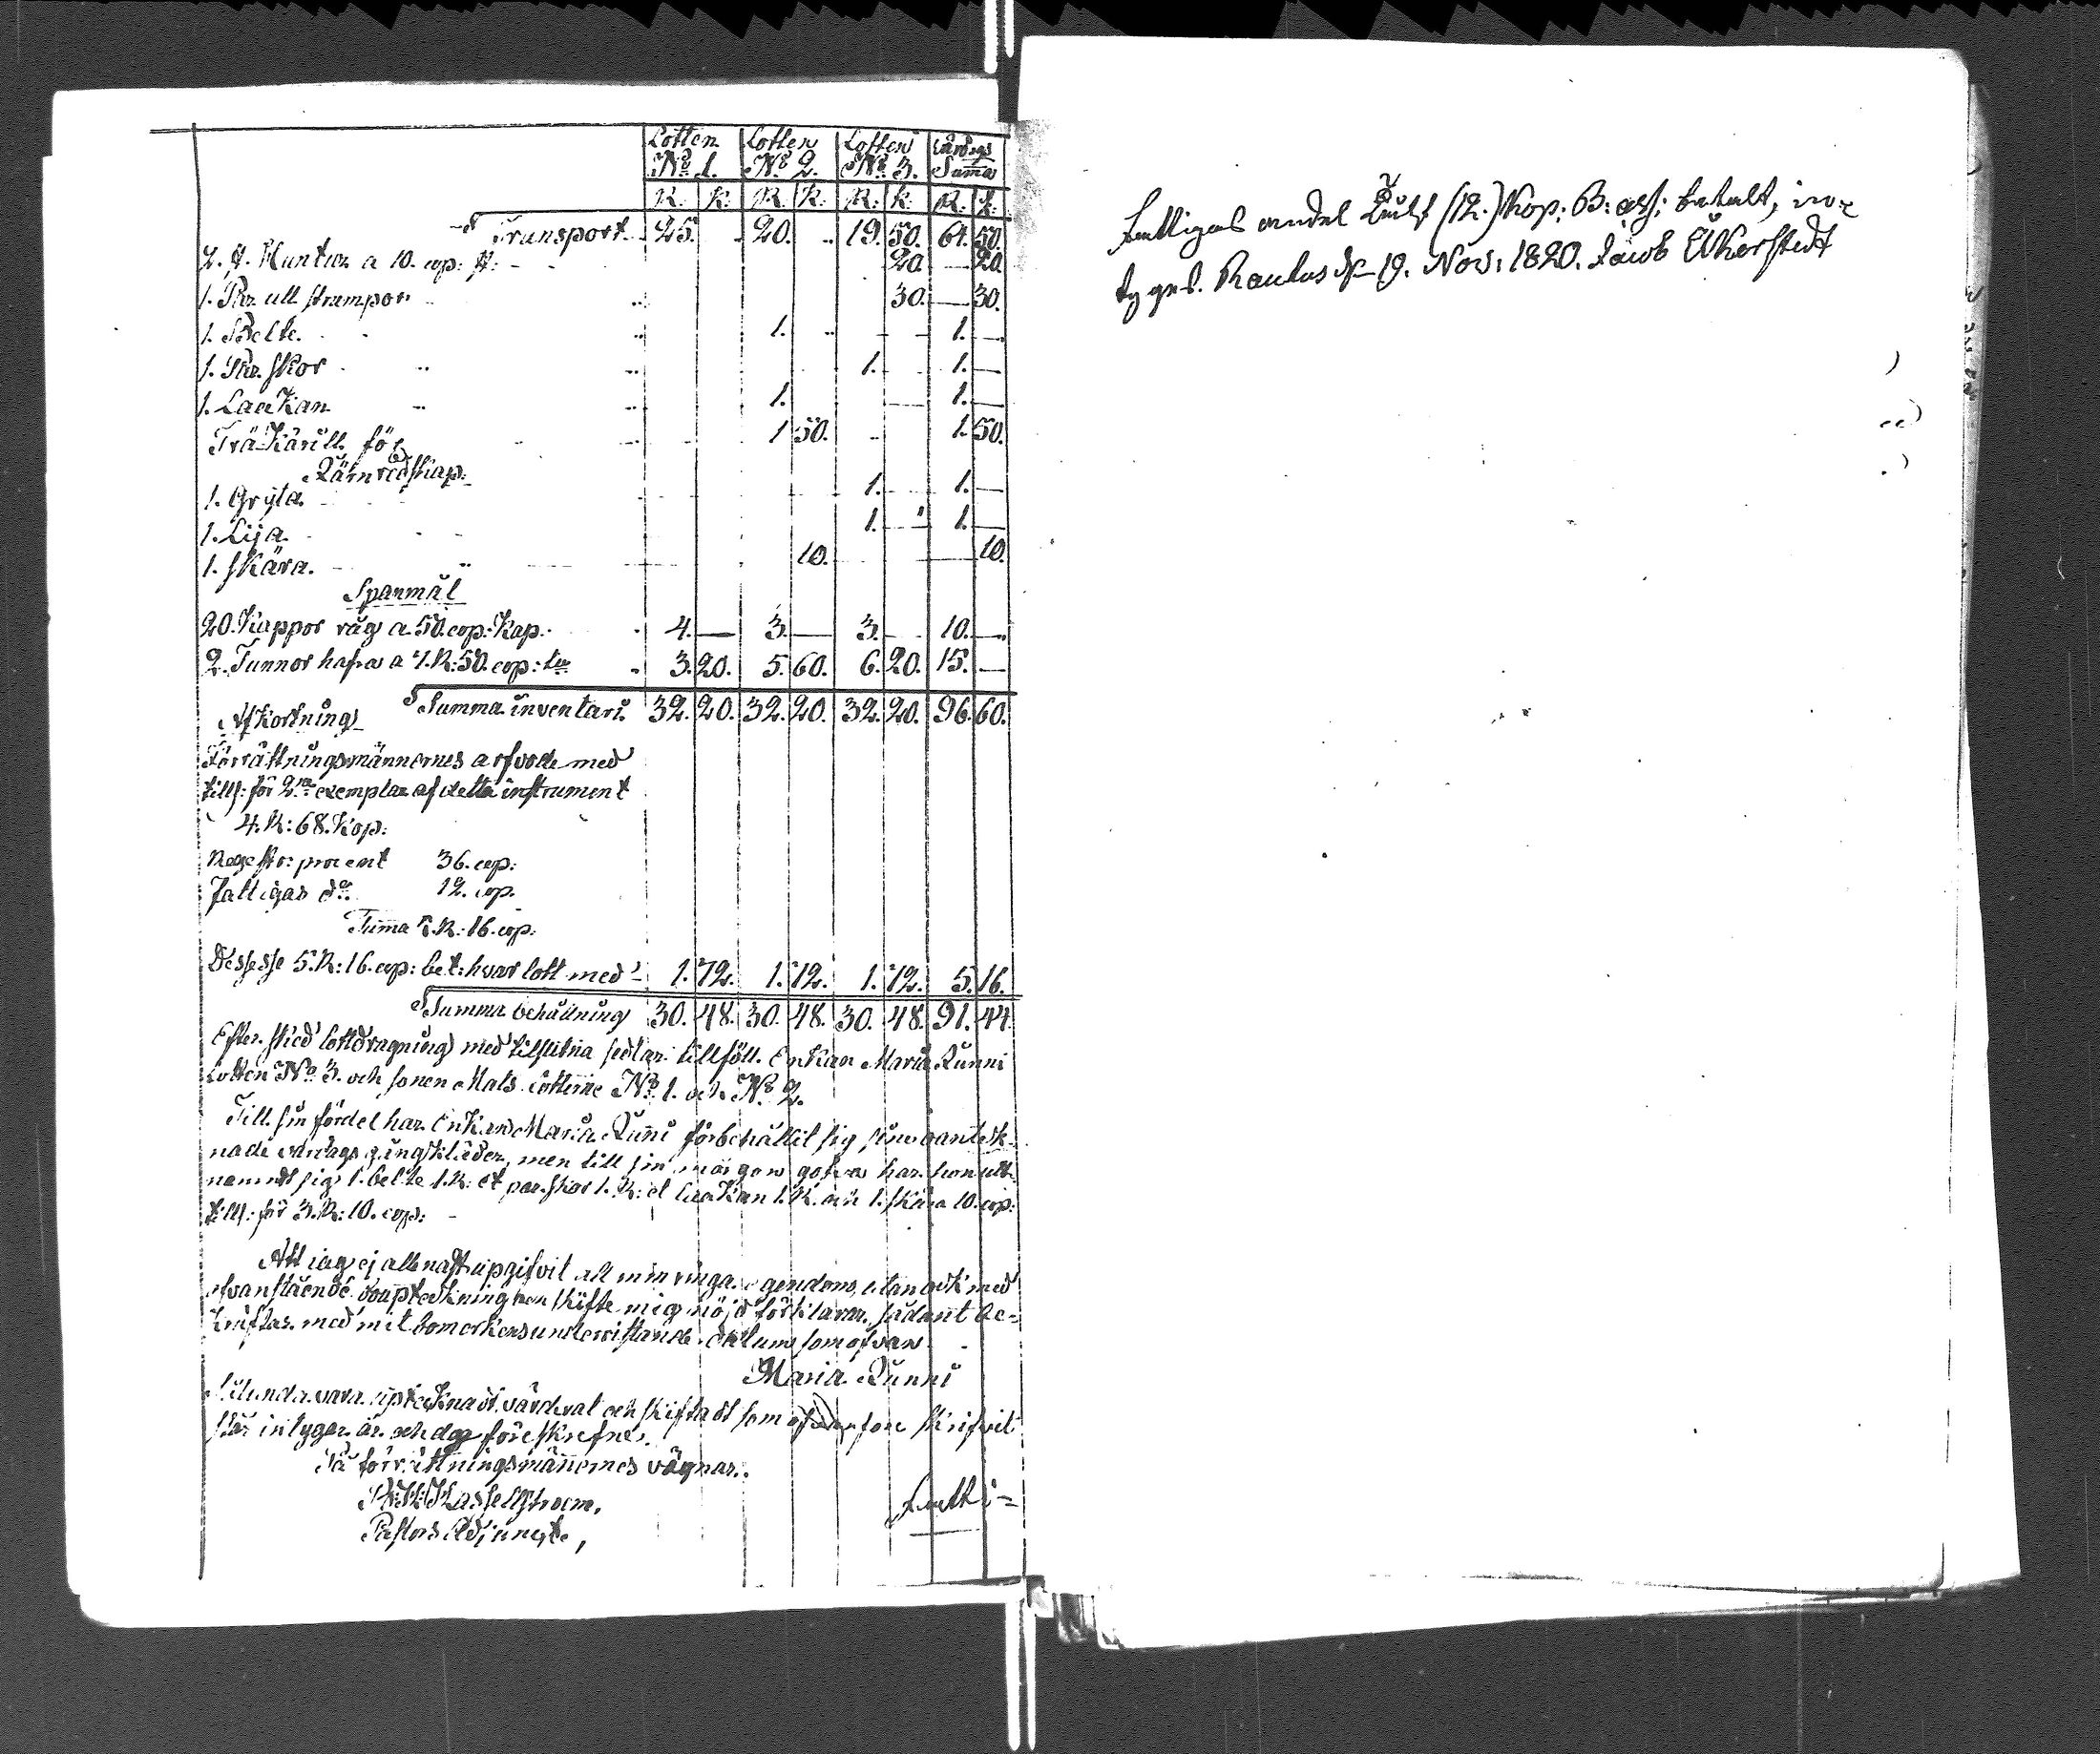 Lotten Lotten Lotten Värdegs
No 1. No 2. No 3. Suma
R. K: R. K: R: K: R: K:
Transport 25. 20. 19. 50. 64. 50.
2. a 10. cop: 20. — 20.
1. Par ull strumpor 30. — 30.
1. Belte. 1. 1. —
1. Par skor 1. 1. —
1. Laakan 1. 1. —
Trä-Kärill för 1 50. 1. 50.
Järnredskap:
1. Gryta 1. 1. —
1. Lija 1. 1. —
1. skära. 10. 10.
Spanmål
20. Kappor råg a 50. cop: Kap. 4. — 3. — 3. — 10. —
2. Tunnor hafra a 7. R: 50. cop: 3. 20. 5. 60. 6. 20. 15. —
Summa inventari. 32. 20. 32. 20. 32. 20. 96. 60.
Afkortning
Förrättningsmännernes arfvode med
tills: för 2ne exemplar af detta instrument
4. R: 68. Kop:
procent 36. cop:
Fattigas do. 12. cop.
Suma 5. R: 16. cop:
Dessesse 5. R: 16. cop: bet: hvar lott med 1. 72. 1. 72. 1. 72. 5. 16.
Summa behållning 30. 48. 30. 48. 30. 48. 91. 44.
Efter skied lottdragning med tilslutna sedlar tillföll Enkan Maria
Lotten No 3. och sonen Mats Lotterne No 1. och No 2.
Till sin fördel har Enkan Maria förbehållit sig sine oanteck-
nade gångkläder, men till sin morgon gofva har hon utt-
namndt sig 1. belte 1. R: et par skor 1. R: et Laakan 1. R. och 1. skära 10. cop:
tills: för 3. R: 10. cop:
Att jag ej allenast upgifvit all min ringa egendom, utan ock med
ofvanstående skifte mig nöjd förklarar, sådant be-
kräftas med mit bomerkens undersittande. Datum som ofvan
Maria
Sålunda vara uptecknadt, värderat och skiftadt som ofvan före skrifvit
står intygar år och dag föreskrefne.
På förrättningsmännernes vägnar.
Hasselstroem,
Pastors Adjuncte,
Fatti=
Fattigas andel Tolf (12.) Kop: B: ass: betalt, in-
tygas. Rautus d. 19. Nov: 1820. Jacob Åkerstedt